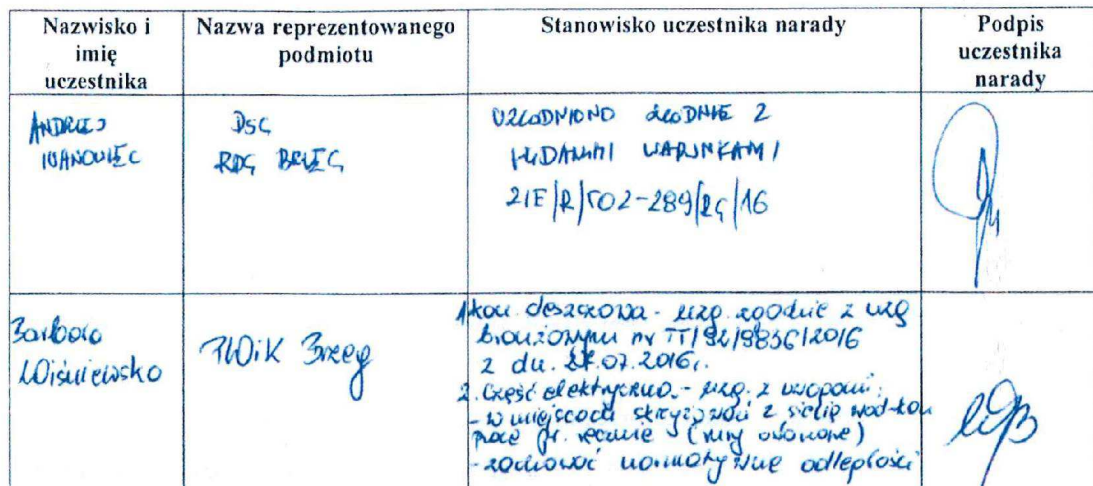 Nazwisko i
imię
uczestnika
Nazwa reprezentowanego
podmiotu
Stanowisko uczestnika narady
Podpis
uczestnika
narady
ANDRZEJ
IWANOWIEC
DSG
RDG BRZEG
UZGODNIONO ZGODNIE Z
WYDANYMI WARUNKAMI
ZIE/R/502-289/RG/16
Barbara
Wiśniewska
PWiK Brzeg
1. kan. deszczowa - uzg. zgodnie z uzg
branżowym nr TT/92/9836/2016
z dn. 27.07.2016r.
2. Część elektryczna - uzg. z uwagami:
- w miejscach skrzyżowań z siecią wod-kan
prace pr. ręcznie (rury osłonowe)
- zachować normatywne odległości